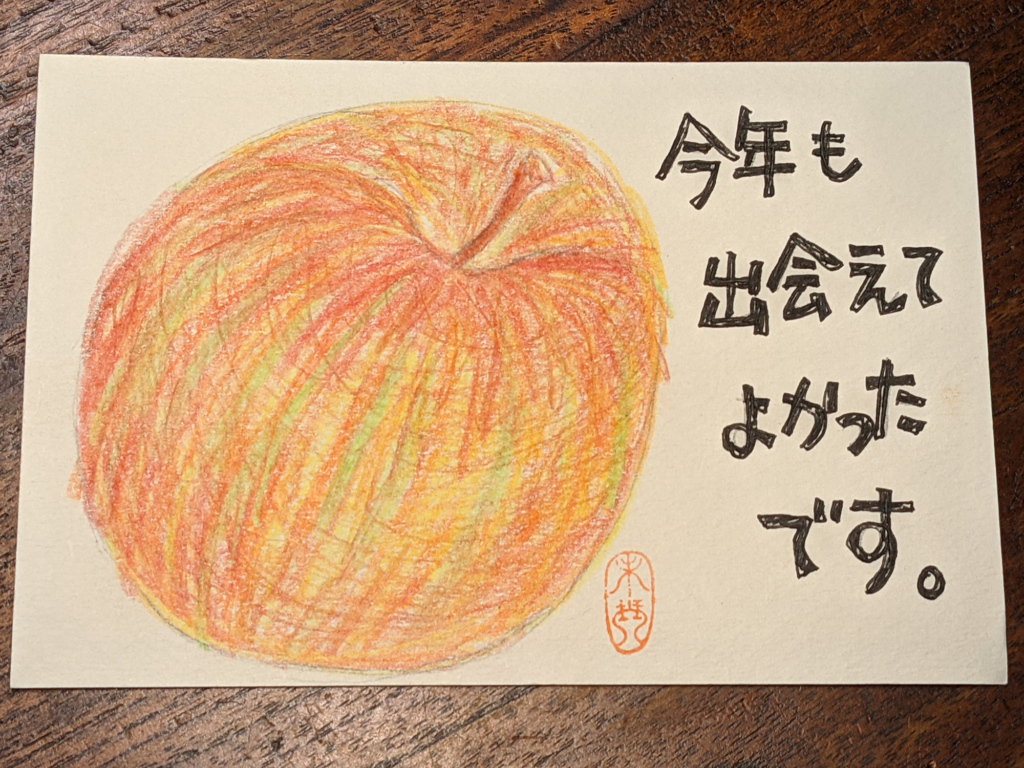 今年も
出会えて
よかった
です。